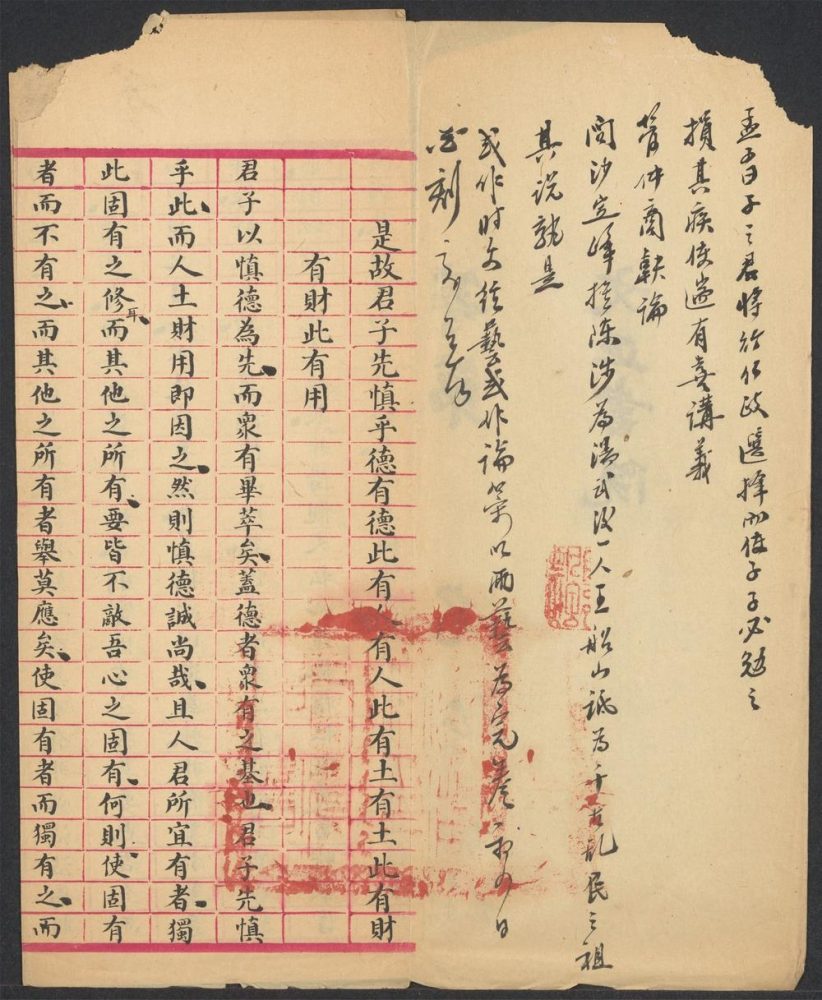 孟子曰子之君將行仁政選擇而使子子必勉之
損其疾使遄有喜講義
管仲商鞅論
推陳涉為湯武後一人王船山詆為千古亂民之祖
其說孰是
或作時文經藝或作論策以兩藝為完卷
是故君子先慎乎德有德此有人有人此有土有土此有財
有財此有用
君子以慎德為先而衆有畢萃矣蓋德者衆有之基也君子先慎
乎此而人土財用即因之然則慎德誠尚哉且人君所宜有者獨
此固有之修耳而其他之所有要皆不敵吾心之固有何則使固有
者而不有之而其他之所有者舉莫應矣使固有者而獨有之而